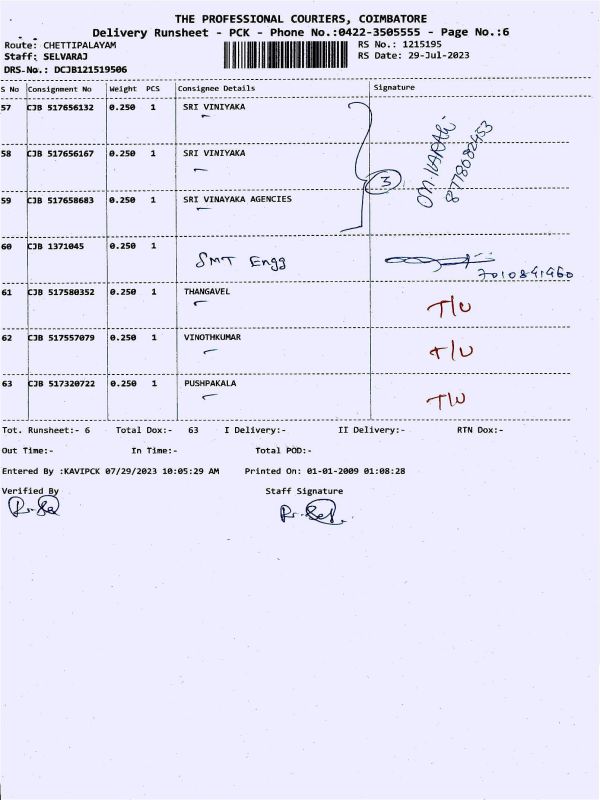 THE PROFESSIONAL COURIERS, COIMBATORE
Delivery Runsheet - PCK - Phone No.:0422-3505555 - Page No.:6
Route: CHETTIPALAYAM RS No.: 1215195
Staff: SELVARAJ RS Date: 29-Jul-2023
DRS No.: DCJB121519506
S No Consignment No Weight PCS Consignee Details Signature
57 CJB 517656132 0.250 1 SRI VINIYAKA
58 CJB 517656167 0.250 1 SRI VINIYAKA
3
OM.VARAHi
8778082453
59 CJB 517658683 0.250 1 SRI VINAYAKA AGENCIES
60 CJB 1371045 0.250 1 SMT Engg
7010841960
61 CJB 517580352 0.250 1 THANGAVEL T/U
62 CJB 517557079 0.250 1 VINOTHKUMAR T/U
63 CJB 517320722 0.250 1 PUSHPAKALA T/U
Tot. Runsheet:- 6 Total Dox:- 63 I Delivery:- II Delivery:- RTN Dox:-
Out Time:- In Time:- Total POD:-
Entered By :KAVIPCK 07/29/2023 10:05:29 AM Printed On: 01-01-2009 01:08:28
Verified By Staff Signature